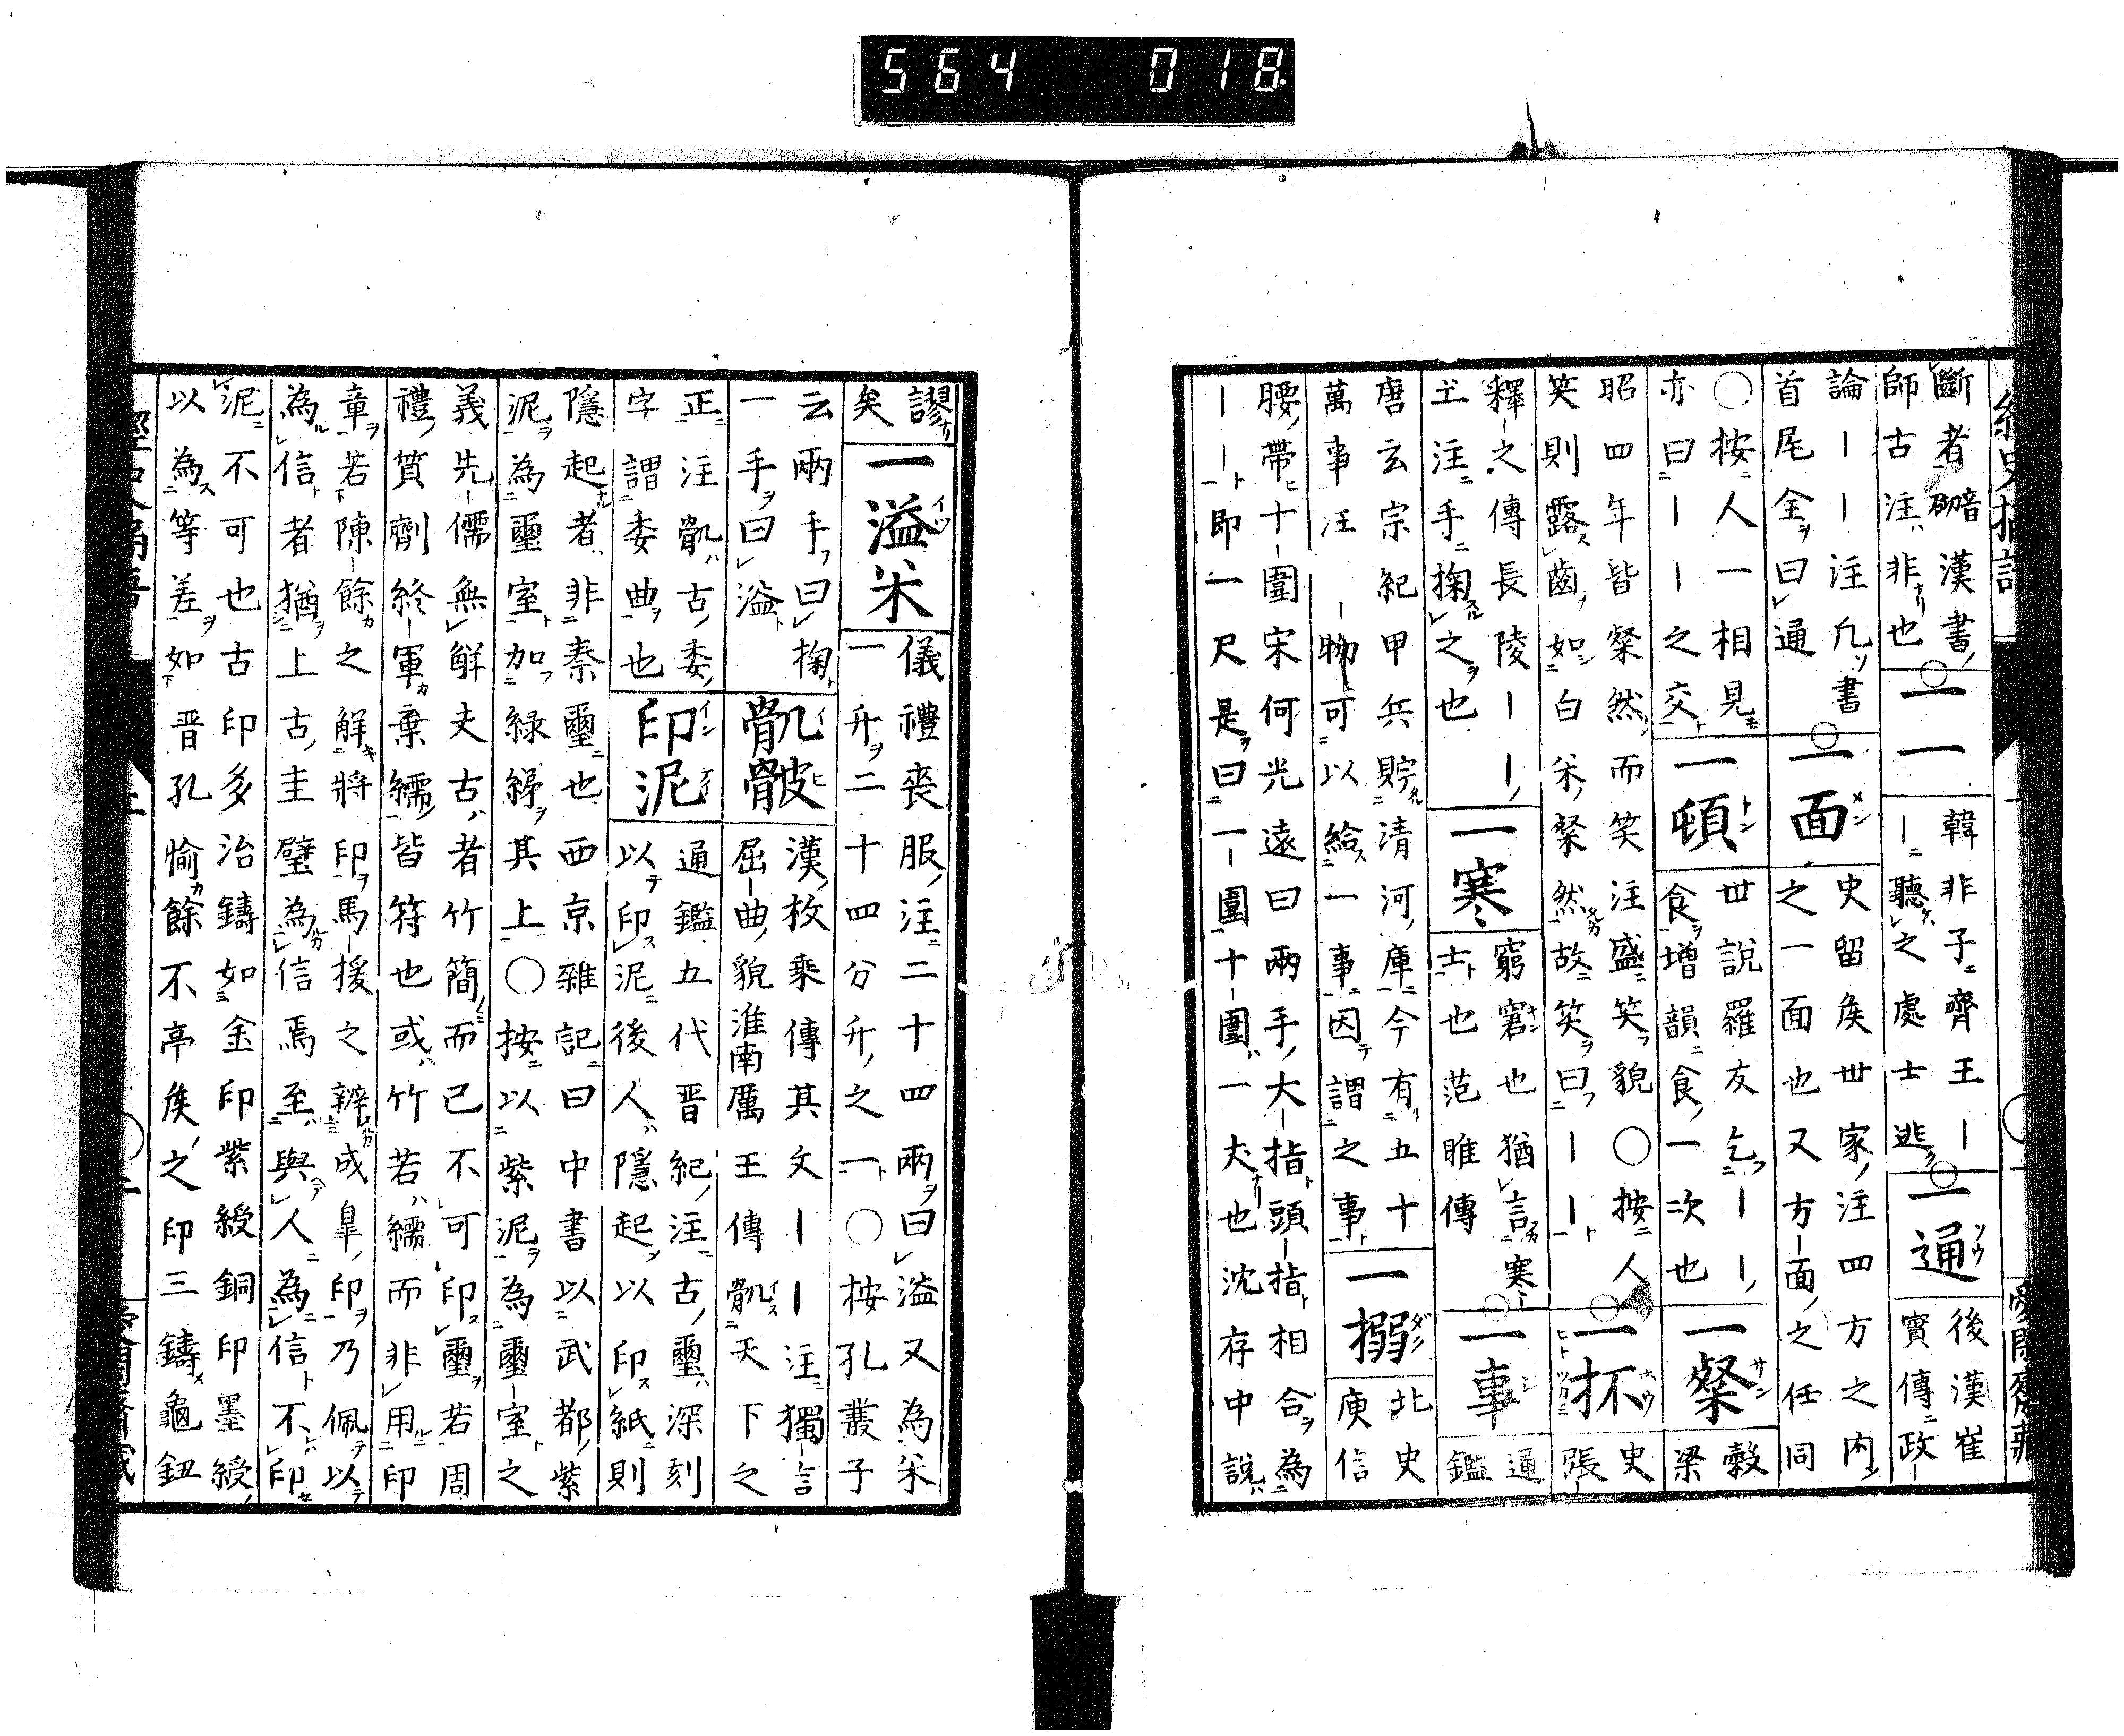 564 018
斷者礀漢書
師古注非也
一一
韓非子齊王ー
ー聽之處士逃
一通
後漢崔
寔傳政ー
論ーー注凢書
首尾全曰通
一面
史留矦世家注四方之内
之一面也又方面之任同
○按人一相見
亦曰ーー之交
一頓
世說羅友乞ーー
食增韻食一次也
一粲
穀
梁
昭四年皆粲然而笑注盛笑貌○按人
笑則露齒如白米粲然故笑曰ーー
一抔
史
張ー
釋之傳長陵ーー
土注手掬之也
一寒
窮窘也猶言寒
士也范睢傳
一事
通
鑑
唐玄宗紀甲兵貯清河庫今有五十
萬事汪ー物可以給一事因謂之事
一搦
北史
庾信
腰帶十圍宋何光遠曰兩手大指頭指相合為
ーー即一尺是曰一圍十圍一丈也沈存中說
謬
矣
一溢米
儀禮喪服注二十四兩曰溢又為米
一升二十四分升之一○按孔叢子
云兩手曰掬
一手曰溢
骫骳
漢枚乘傳其文ーー注獨言
屈曲貌淮南厲王傳骫天下之
正注骫古委
字謂委曲也
印泥
通鑑五代晋紀注古璽深刻
以印泥後人隱起以印紙則
隱起者非秦璽也西京雜記曰中書以武都紫
泥為璽室加綠綈其上○按以紫泥為璽室之
義先儒無解夫古者竹簡而已不可印璽若周
禮質劑終軍棄繻皆符也或竹若繻而非用印
章若陳餘之解將印馬援之辨成臯印乃佩以
為信者猶上古圭璧為信焉至與人為信不印
泥不可也古印多冶鑄如金印紫綬銅印墨綬
以為等差如晋孔愉餘不亭矦之印三鑄龜鈕